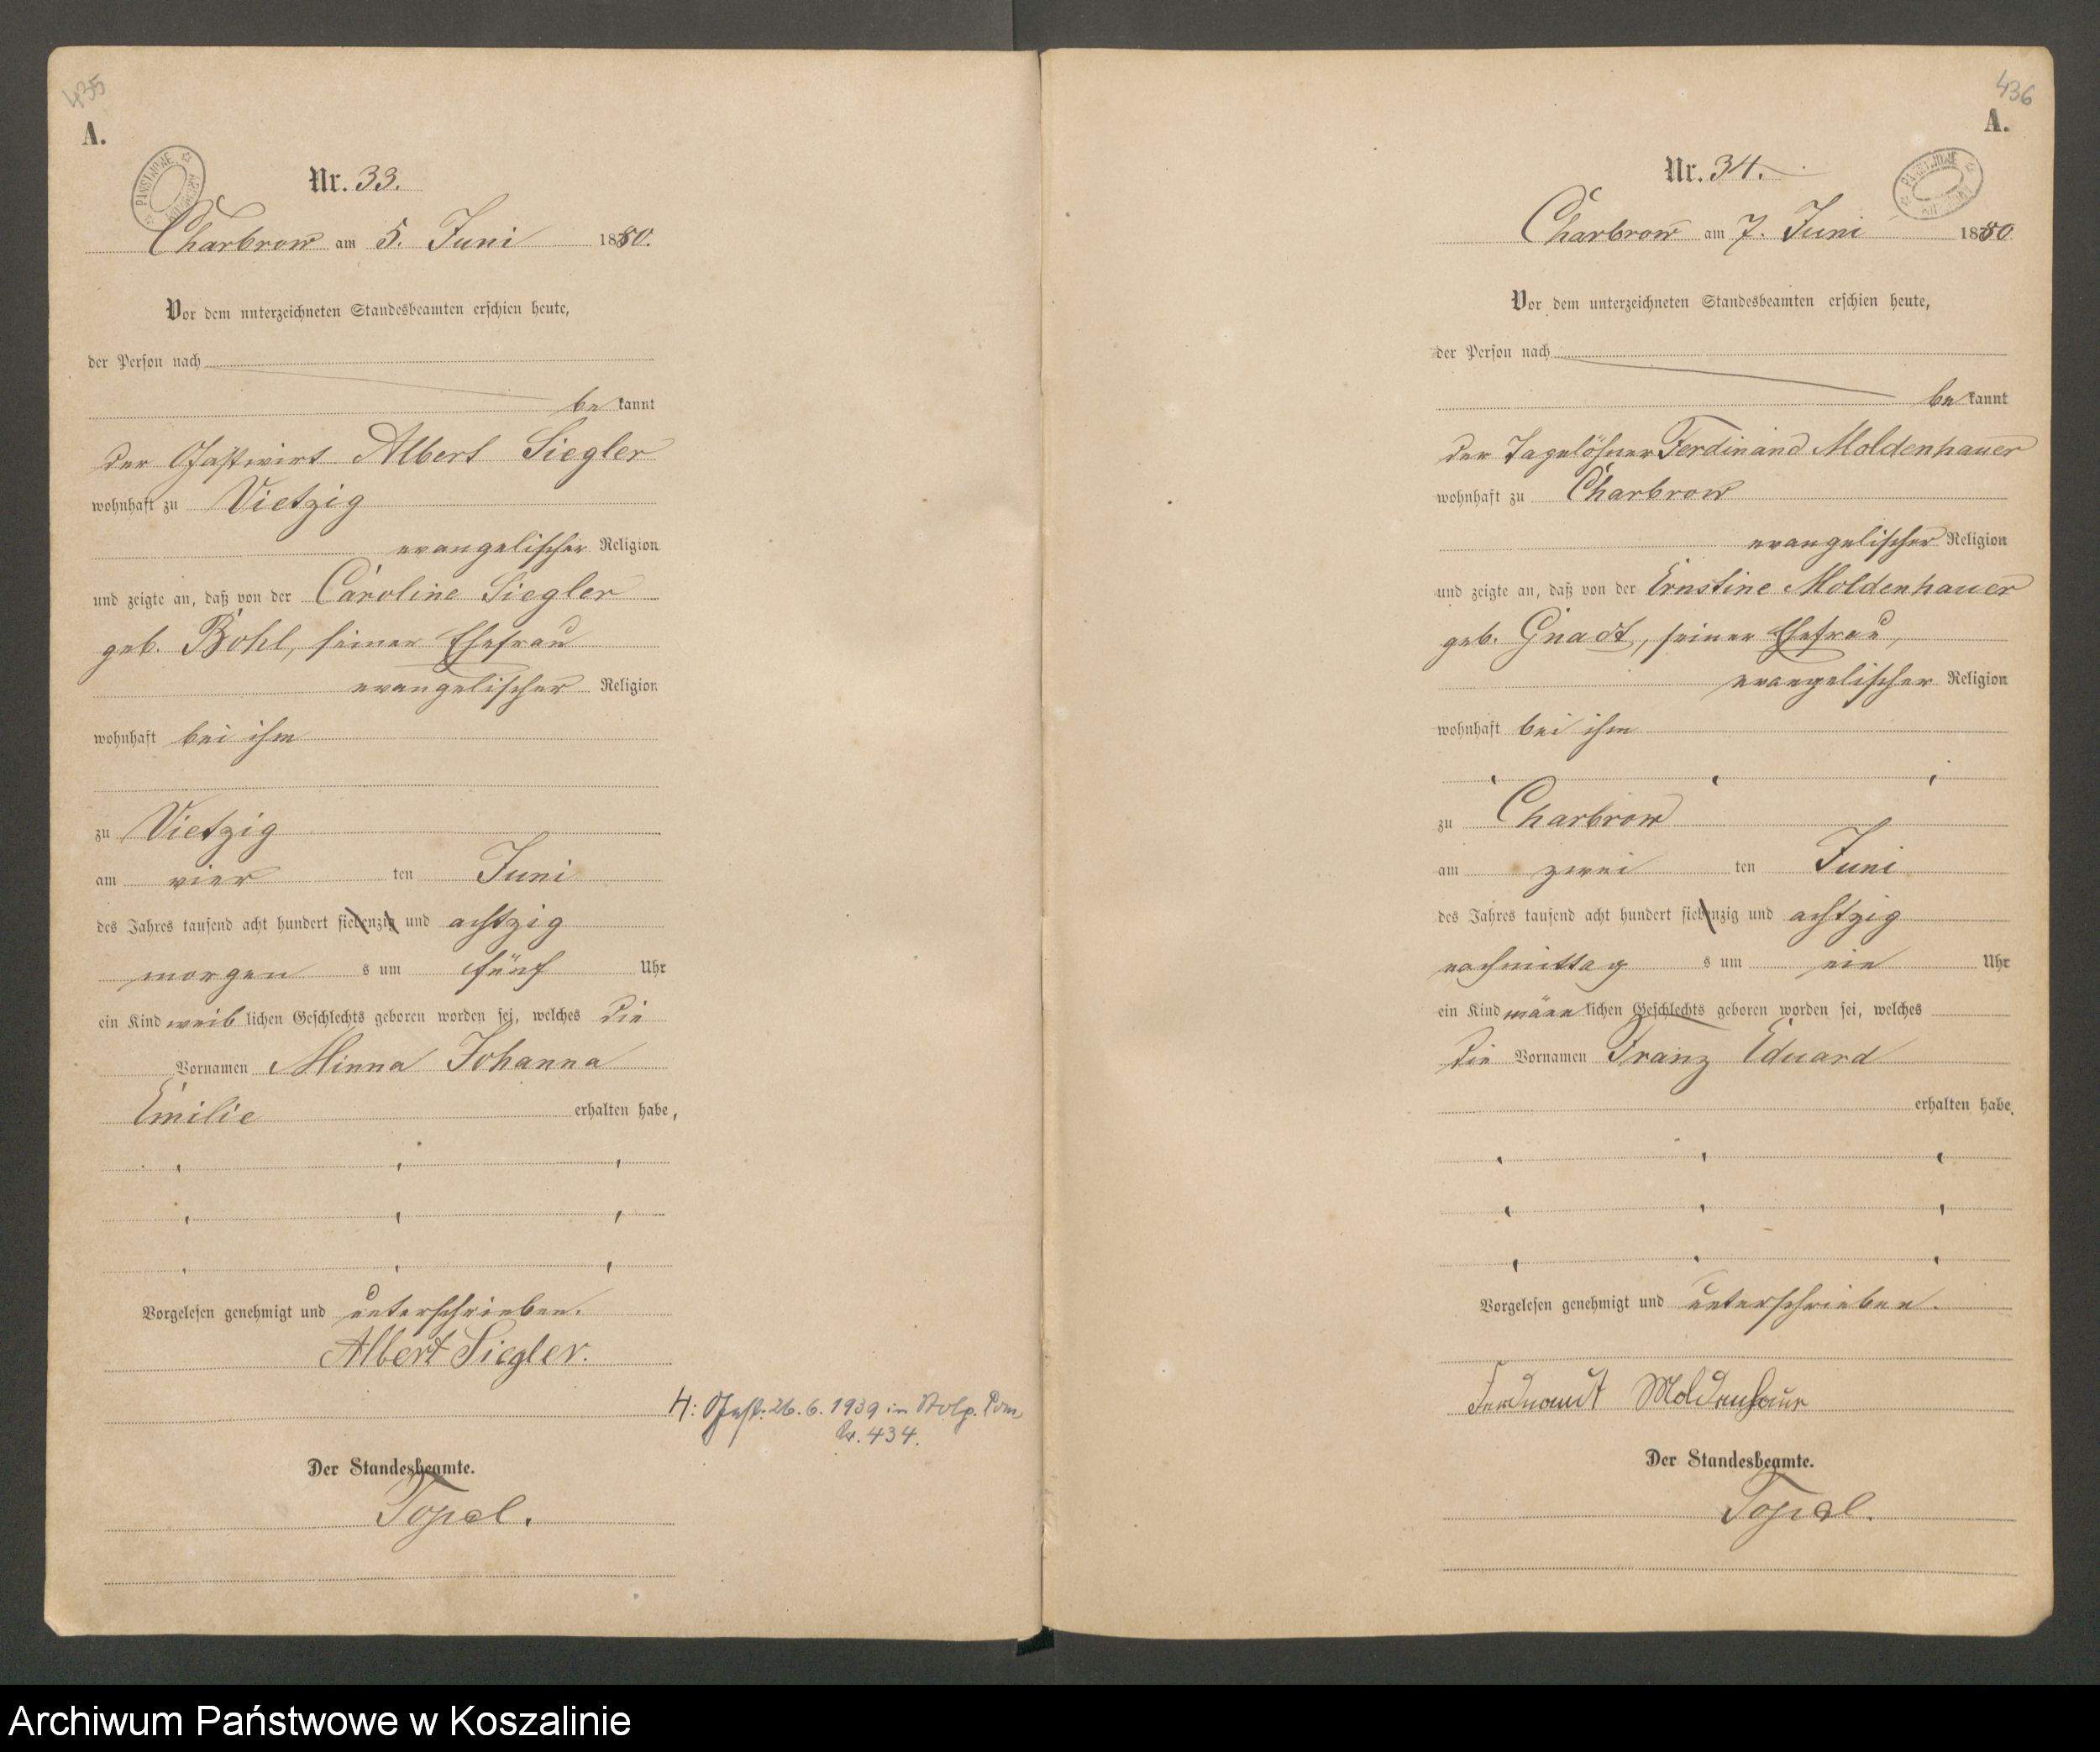 435
A.
PAŃSTWOWE
Nr. 33.
Charbrow am 5. Juni 1880.
Vor dem unterzeichneten Standesbeamten erschien heute,
der Person nach
be kannt
der Gastwirt Albert Siegler
wohnhaft zu Vietzig
evangelischer Religion
und zeigte an, daß von der Caroline Siegler
geb. Bohl, seiner Ehefrau
evangelischer Religion
wohnhaft bei ihm
zu Vietzig
am vier ten Juni
des Jahres tausend acht hundert siebenzig und achtzig
morgen s um fünf Uhr
ein Kind weib lichen Geschlechts geboren worden sei, welches die
Vornamen Minna Johanna
Emilie erhalten habe,
Vorgelesen genehmigt und unterschrieben.
Albert Siegler.
H: Gest. 26. 6. 1939 in Stolp. Pom,
Nr. 434.
Der Standesbeamte.
Topel.
436
A.
PAŃSTWOWE
Nr. 34.
Charbrow am 7. Juni 1880
Vor dem unterzeichneten Standesbeamten erschien heute,
der Person nach
be kannt
der Tagelöhner Ferdinand Moldenhauer
wohnhaft zu Charbrow
evangelischer Religion
und zeigte an, daß von der Ernstine Moldenhauer
geb. Gnadt, seiner Ehefrau,
evangelischer Religion
wohnhaft bei ihm
zu Charbrow
am zwei ten Juni
des Jahres tausend acht hundert siebenzig und achtzig
nachmittag s um ein Uhr
ein Kind männ lichen Geschlechts geboren worden sei, welches
die Vornamen Franz Eduard
erhalten habe.
Vorgelesen genehmigt und unterschrieben.
Ferdnandt Moldenhaur
Der Standesbeamte.
Topel.
Archiwum Państwowe w Koszalinie